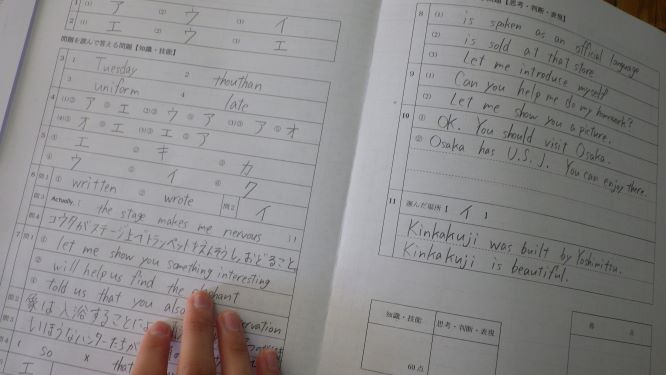 1 (1) ア (2) ウ (3) イ
2 (1) エ (2) ウ (3) エ
問題を読んで答える問題【知識・技能】
3 1 Tuesday 2 thouthan
3 uniform 4 late
4 (1)① ア ② エ (2)① ウ ② ア (3)① ア ② オ
オ ② エ エ ② ア
5 ① エ ② キ ③ カ
④ ウ ⑤ イ ⑥ ク
6 問1 ① written ② wrote 問2 イ
問3 Actually, ( the stage makes me nervous ).
問4
7 問1 ① let me show you something interesting
② will help us find the elephant
③ told us that you also
問2 象は入浴すること
問3
問4 ( so × that
エ
【思考・判断・表現】
8 (1) is spoken as an official language
(2) is sold at that store
(3) Let me introduce myself
9 (1) Can you help me do my homework?
(2) Let me show you a picture.
10 ① OK. You should visit Osaka.
② Osaka has U.S.J. You can enjoy there.
11 選んだ場所【 イ 】
Kinkakuji was built by Yoshimitsu.
Kinkakuji is beautiful.
知識・技能 思考・判断・表現
60点